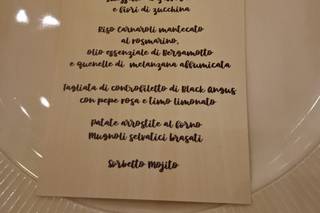 e fiori di zucchina
Riso Carnaroli mantecato
al rosmarino,
olio essenziale di Bergamotto
e quenelle di melanzana affumicata
Tagliata di controfiletto di Black Angus
con pepe rosa e timo limonato
Patate arrostite al forno
Mugnoli selvatici brasati
Sorbetto Mojito